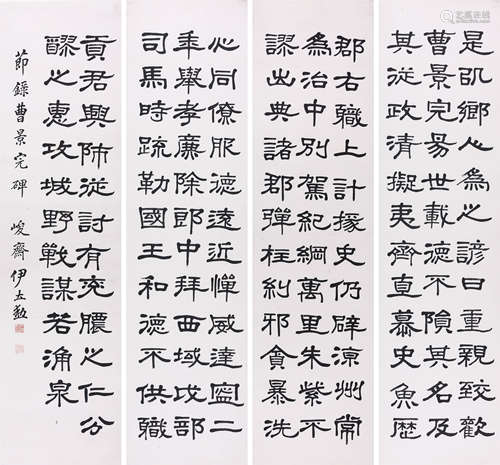 是㠯鄉人為之諺曰重親致歡
曹景完易世載德不隕其名及
其從政清擬夷齊直慕史魚歷
郡右職上計掾史仍辟涼州常
為治中別駕紀綱萬里朱紫不
謬出典諸郡彈枉糾邪貪暴洗
心同僚服德遠近憚威建寧二
年舉孝廉除郎中拜西域戊部
司馬時疏勒國王和德不供職
貢君興師征討有兗膿之仁分
醪之惠攻城野戰謀若涌泉
節錄曹景完碑 峻齋伊立勳